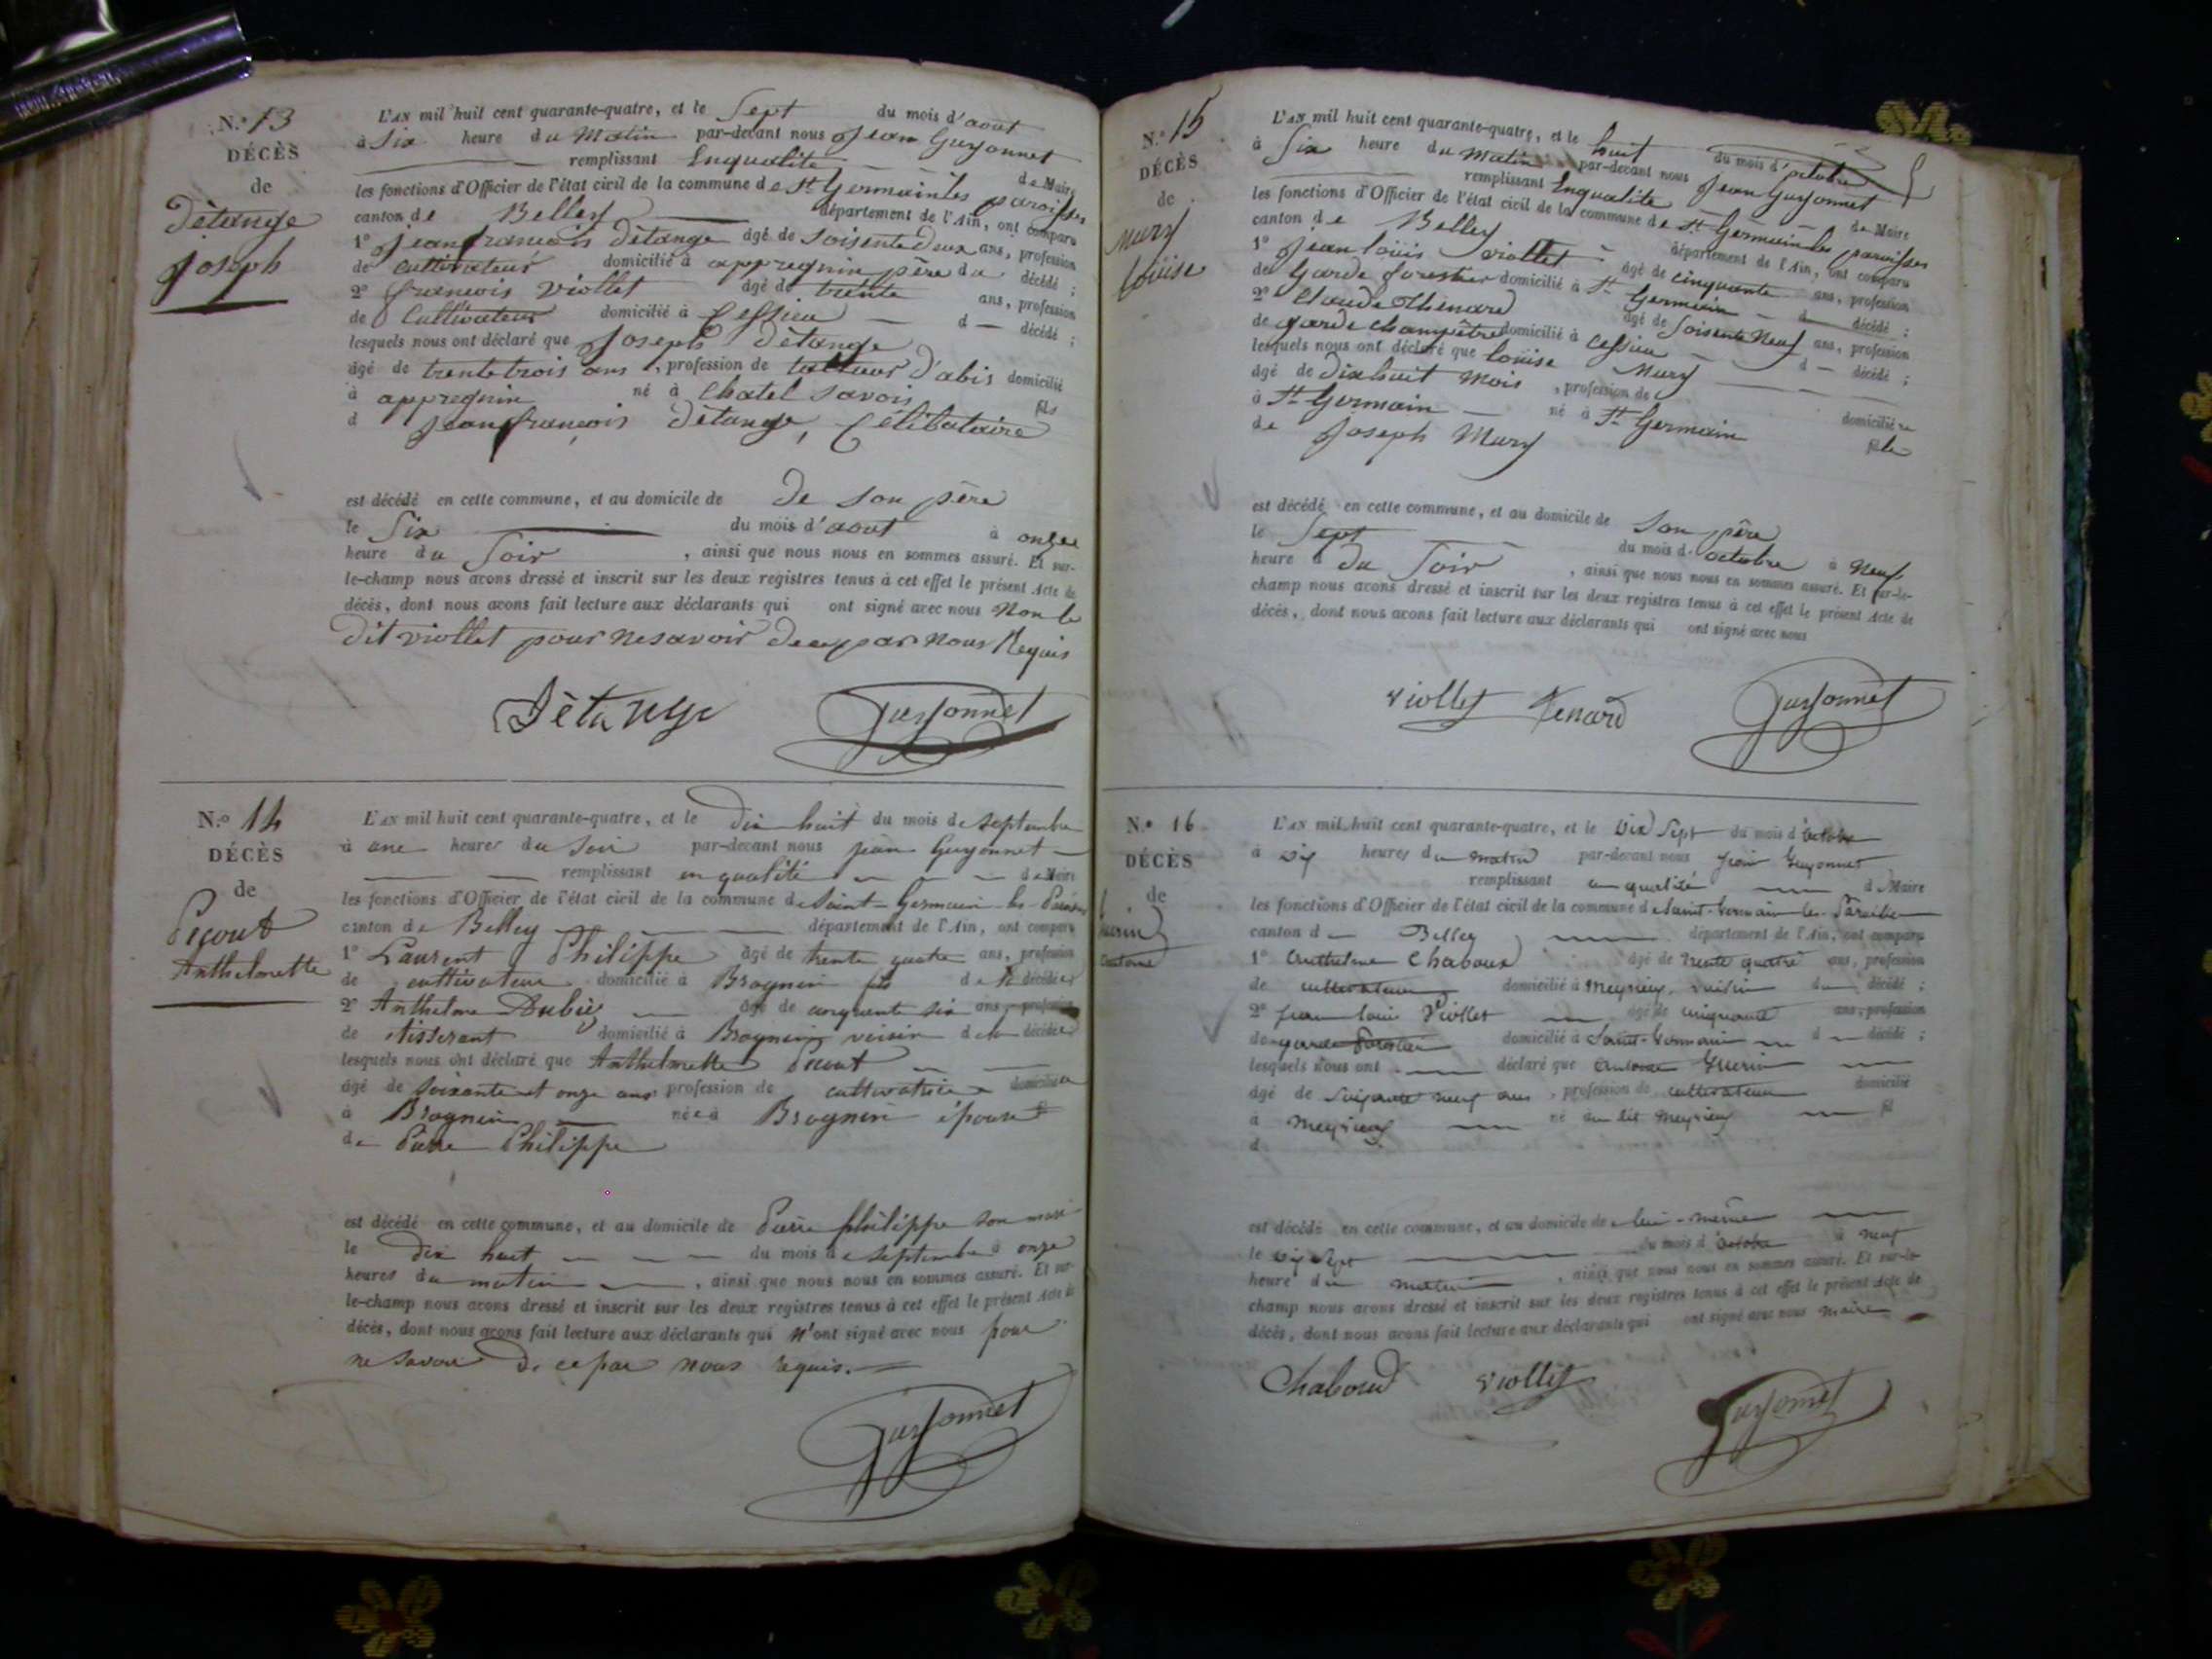 N.º 13
DÉCÈS
de
Dètange
Joseph
L'AN mil huit cent quarante-quatre, et le Sept du mois d'aout
à Six heure du Matin par-devant nous Jean Guyonnet
remplissant Enqualité de Maire
les fonctions d'Officier de l'état civil de la commune de St Germain les paroisses
canton de Belley département de l'Ain, ont comparu
1º Jean francois Dètange âgé de Soisente Deux ans, profession
de Cultivateur domicilié à appregnin père du décédé ;
2º francois viollet âgé de trente ans, profession
de Cultivateur domicilié à Cessieu d — décédé ;
lesquels nous ont déclaré que Joseph Dètange
âgé de trente trois ans, profession de tailleur d'abis domicilié
à appregnin né à Chatel Savois fils
d Jean francois Dètange, Célibataire
est décédé en cette commune, et au domicile de De Son père
le Six du mois d'aout à onzee
heure du Soir, ainsi que nous nous en sommes assuré. Et sur-
le-champ nous avons dressé et inscrit sur les deux registres tenus à cet effet le présent Acte de
décès, dont nous avons fait lecture aux déclarants qui ont signé avec nous Non le
Dit viollet pour ne savoir De ce par nous Requis
Dètange Guyonnet
N.º 14
DÉCÈS
de
Pecout
Anthelmette
L'AN mil huit cent quarante-quatre, et le Dix huit du mois de Septembre
à une heure du Soir par-devant nous jean Guyonnet
remplissant en qualité de Maire
les fonctions d'Officier de l'état civil de la commune de Saint-Germain-les-Paroisses
canton de Belley département de l'Ain, ont comparu
1º Laurent Philippe âgé de trente quatre ans, profession
de cultivateur domicilié à Brognin fils de la décédée
2º Anthelme Dubiez âgé de cinquante six ans, profession
de tisserant domicilié à Brognin voisin de la décédée
lesquels nous ont déclaré que Anthelmette Pecout
âgé de Soixante et onze ans profession de cultivatrice domiciliée
à Brognin née à Brognin épouse
de Pierre Philippe
est décédé en cette commune, et au domicile de Pierre philippe Son mari
le dix huit du mois de Septembre à onze
heures du matin, ainsi que nous nous en sommes assuré. Et sur-
le-champ nous avons dressé et inscrit sur les deux registres tenus à cet effet le présent Acte de
décès, dont nous avons fait lecture aux déclarants qui n'ont signé avec nous pour
ne savoir De ce par nous requis.
Guyonnet
N.º 15
DÉCÈS
de
Mury
louise
L'AN mil huit cent quarante-quatre, et le huit du mois d'octobre
à Six heure du Matin par-devant nous Jean Guyonnet
remplissant Enqualité de Maire
les fonctions d'Officier de l'état civil de la commune de St Germain les paroisses
canton de Belley département de l'Ain, ont comparu
1º Jean louis viollet âgé de cinquante ans, profession
de Garde forestier domicilié à St Germain d décédé ;
2º Claude Thenard âgé de Soisente Neuf ans, profession
de garde champêtre domicilié à Cessieu d — décédé ;
lesquels nous ont déclaré que louise Mury
âgé de Dix huit Mois, profession de domicilié
à St Germain né à St Germain fille
de Joseph Mury
est décédé en cette commune, et au domicile de Son père
le Sept du mois d'octobre à Neuf
heure d du Soir, ainsi que nous nous en sommes assuré. Et sur-le-
champ nous avons dressé et inscrit sur les deux registres tenus à cet effet le présent Acte de
décès, dont nous avons fait lecture aux déclarants qui ont signé avec nous
viollet Tenard Guyonnet
N.º 16
DÉCÈS
de
Guerin
Antoine
L'AN mil huit cent quarante-quatre, et le Dix Sept du mois d'octobre
à dix heures du matin par-devant nous jean Guyonnet
remplissant en qualité d Maire
les fonctions d'Officier de l'état civil de la commune de Saint-Germain-les-Paroisses
canton de Belley département de l'Ain, ont comparu
1º Anthelme Chaboud âgé de trente quatre ans, profession
de cultivateur domicilié à Meyrieu voisin du décédé ;
2º jean louis Viollet âgé de cinquante ans, profession
de garde forestier domicilié à Saint-Germain d décédé ;
lesquels nous ont déclaré que Antoine Guerin
âgé de Soixante neuf ans, profession de cultivateur domicilié
à Meyrieux né au dit Meyrieux fil
d
est décédé en cette commune, et au domicile de lui-même
le dix Sept du mois d'octobre à neuf
heure du matin, ainsi que nous nous en sommes assuré. Et sur-le-
champ nous avons dressé et inscrit sur les deux registres tenus à cet effet le présent Acte de
décès, dont nous avons fait lecture aux déclarants qui ont signé avec nous maire
Chaboud viollet Guyonnet